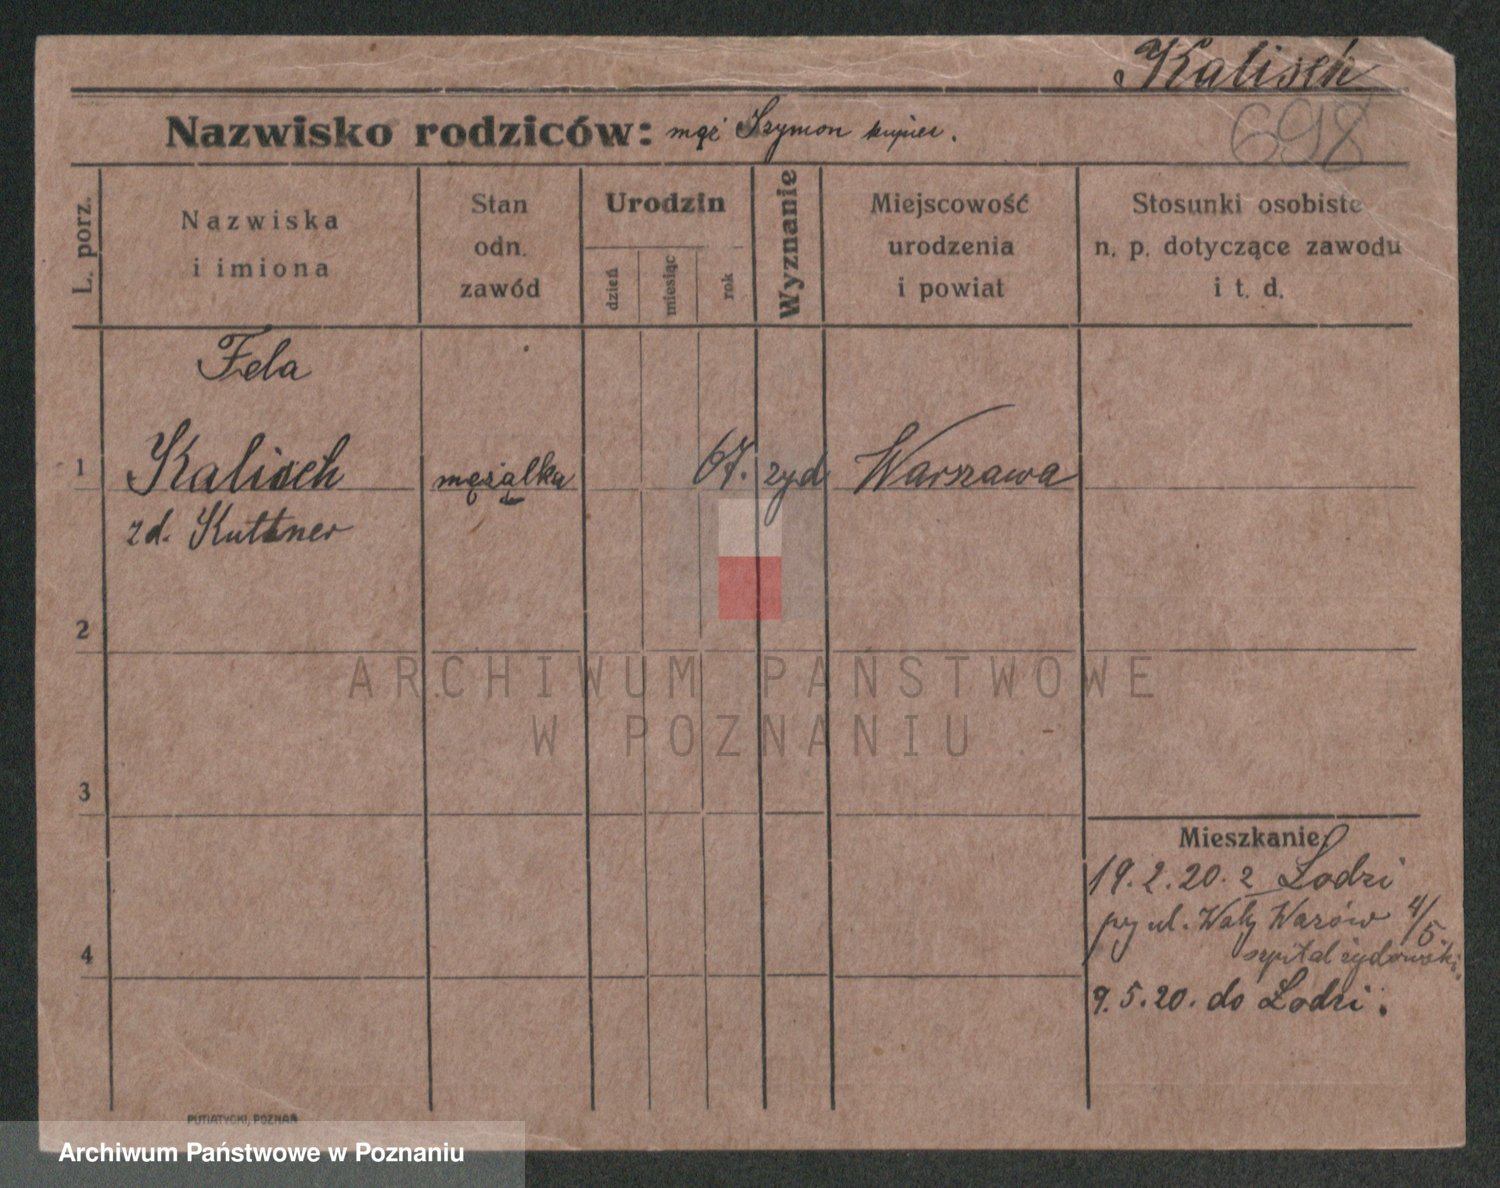 Kalisch
698
Nazwisko rodziców: mąż Szymon kupiec.
L. porz.
Nazwiska
i imiona
Stan
odn.
zawód
Urodzin
dzień
miesiąc
rok
Wyznanie
Miejscowość
urodzenia
i powiat
Stosunki osobiste
n. p. dotyczące zawodu
i t. d.
Fela
1 Kalisch mężatka 67. żyd Warszawa
zd. Kuttner
2
ARCHIWUM PAŃSTWOWE
W POZNANIU
3
Mieszkanie
19.2.20. z Lodzi
ul. Wały 4/5.
szpital żydowski.
4
9.5.20. do Lodzi.
PUTIATYCKI, POZNAŃ
Archiwum Państwowe w Poznaniu